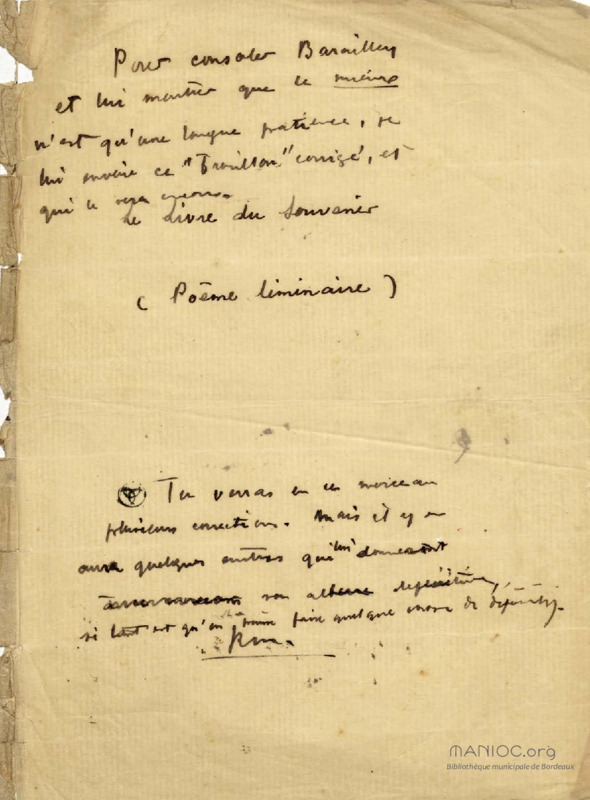 Pour consoler Barailley
et lui montrer que le mieux
n'est qu'une longue patience, je
lui envoie ce "Brouillon" corrigé, et
qui le sera encore.
Le Livre du Souvenir
( Poème liminaire )
Tu verras en ce morceau
plusieurs corrections. Mais il y en
aura quelques autres qui lui donneront
son allure définitive,
si tant est qu'on puisse faire quelque chose de définitif.
MANIOC.org
Bibliothèque municipale de Bordeaux